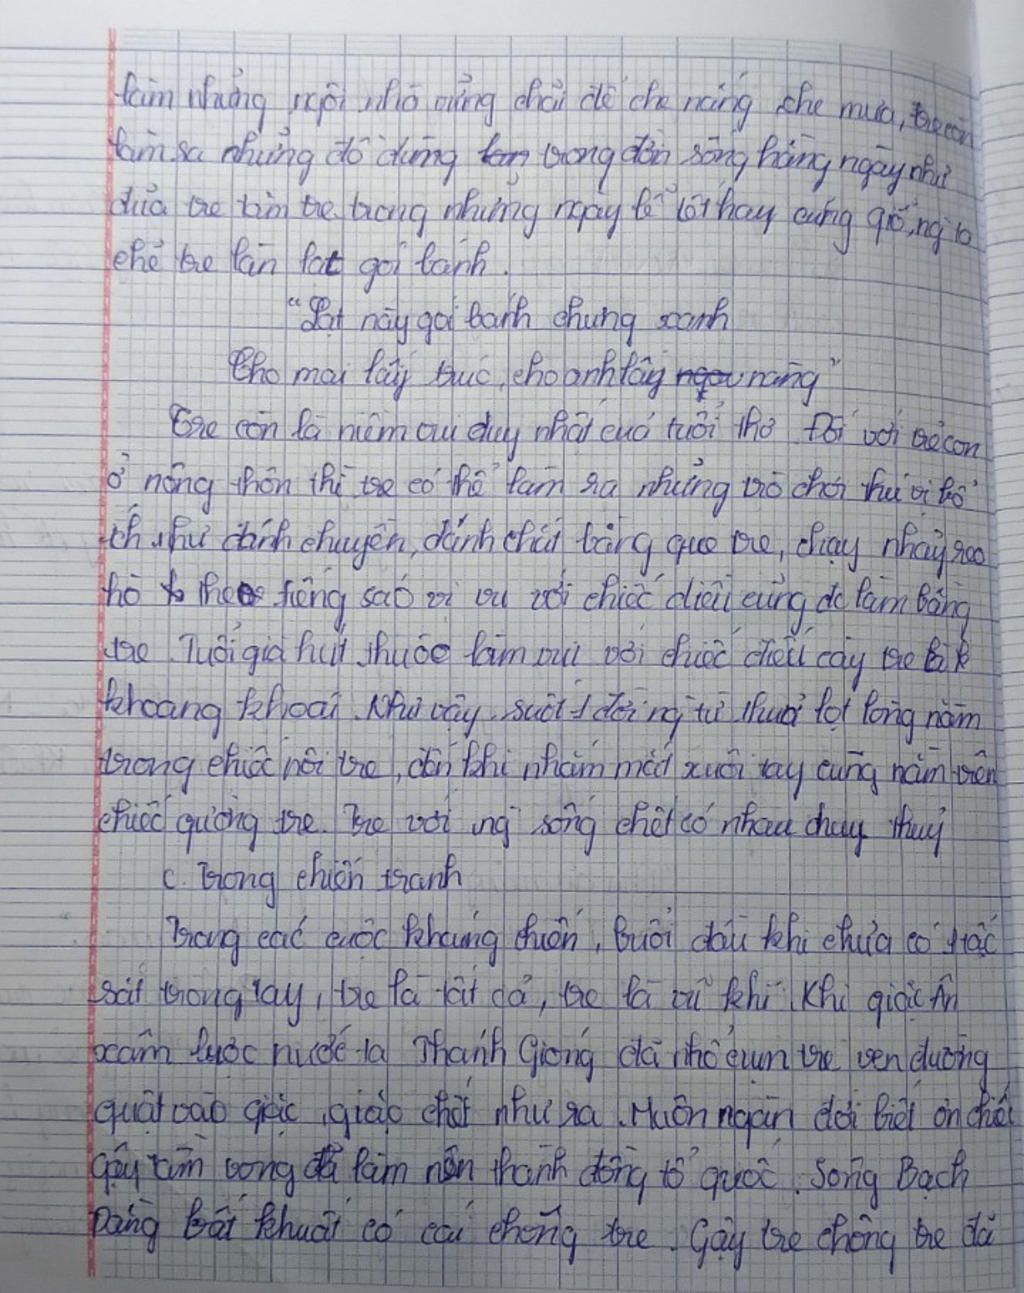 làm những ngôi nhà vững chãi để che nắng che mưa, tre còn
làm ra những đồ dùng trong đời sống hằng ngày như
đũa tre tăm tre. trong những ngày lễ tết hay cúng giỗ, ng ta
chẻ tre làm lạt gói bánh.
"Lạt này gói bánh chưng xanh
Cho mai lấy trúc, cho anh lấy nàng"
Tre còn là niềm vui duy nhất của tuổi thơ. Đối với trẻ con
ở nông thôn thì tre có thể làm ra những trò chơi thú vị bổ
ích như đánh chuyền, đánh chắt bằng que tre, chạy nhảy reo
hò theo tiếng sáo vi vu với chiếc diều cũng đc làm bằng
tre. Tuổi già hút thuốc làm vui với chiếc điếu cày tre là
khoang khoái. Như vậy suốt 1 đời ng từ thuở lọt lòng nằm
trong chiếc nôi tre, đến khi nhắm mắt xuôi tay cũng nằm trên
chiếc giường tre. Tre với ng sống chết có nhau chung thuỷ
c. Trong chiến tranh
Trong các cuộc kháng chiến, buổi đầu khi chưa có tấc
sắt trong tay, tre là tất cả, tre là vũ khí. Khi giặc Ân
xâm lược nước ta Thánh Gióng đã nhổ cụm tre ven đường
quật vào giặc, giặc chết như rạ. Muôn ngàn đời biết ơn chiếc
gậy tầm vong đã làm nên thành đồng tổ quốc. Sông Bạch
Đằng bất khuất có cái chông tre. Gậy tre chông tre đã